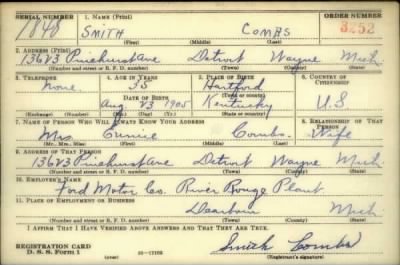 SERIAL NUMBER 1. NAME (Print) ORDER NUMBER
1848 SMITH COMBS 3252
(First) (Middle) (Last)
2. ADDRESS (Print)
13623 Pinehurst Ave Detroit Wayne Mich.
(Number and street or R. F. D. number) (Town) (County) (State)
3. TELEPHONE 4. AGE IN YEARS 5. PLACE OF BIRTH 6. COUNTRY OF CITIZENSHIP
None 35 Hartford
DATE OF BIRTH (Town or county)
Aug 23 1905 Kentucky U S
(Exchange) (Number) (Mo.) (Day) (Yr.) (State or country)
7. NAME OF PERSON WHO WILL ALWAYS KNOW YOUR ADDRESS 8. RELATIONSHIP OF THAT PERSON
Mrs. Eunice Combs. Wife
(Mr., Mrs., Miss) (First) (Middle) (Last)
9. ADDRESS OF THAT PERSON
13623 Pinehurst Ave Detroit Wayne Mich.
(Number and street or R. F. D. number) (Town) (County) (State)
10. EMPLOYER'S NAME
Ford Motor Co. River Rouge Plant.
11. PLACE OF EMPLOYMENT OR BUSINESS
Dearborn Mich
(Number and street or R. F. D. number) (Town) (County) (State)
I AFFIRM THAT I HAVE VERIFIED ABOVE ANSWERS AND THAT THEY ARE TRUE.
REGISTRATION CARD
D. S. S. Form 1 Smith Combs
(Registrant's signature)